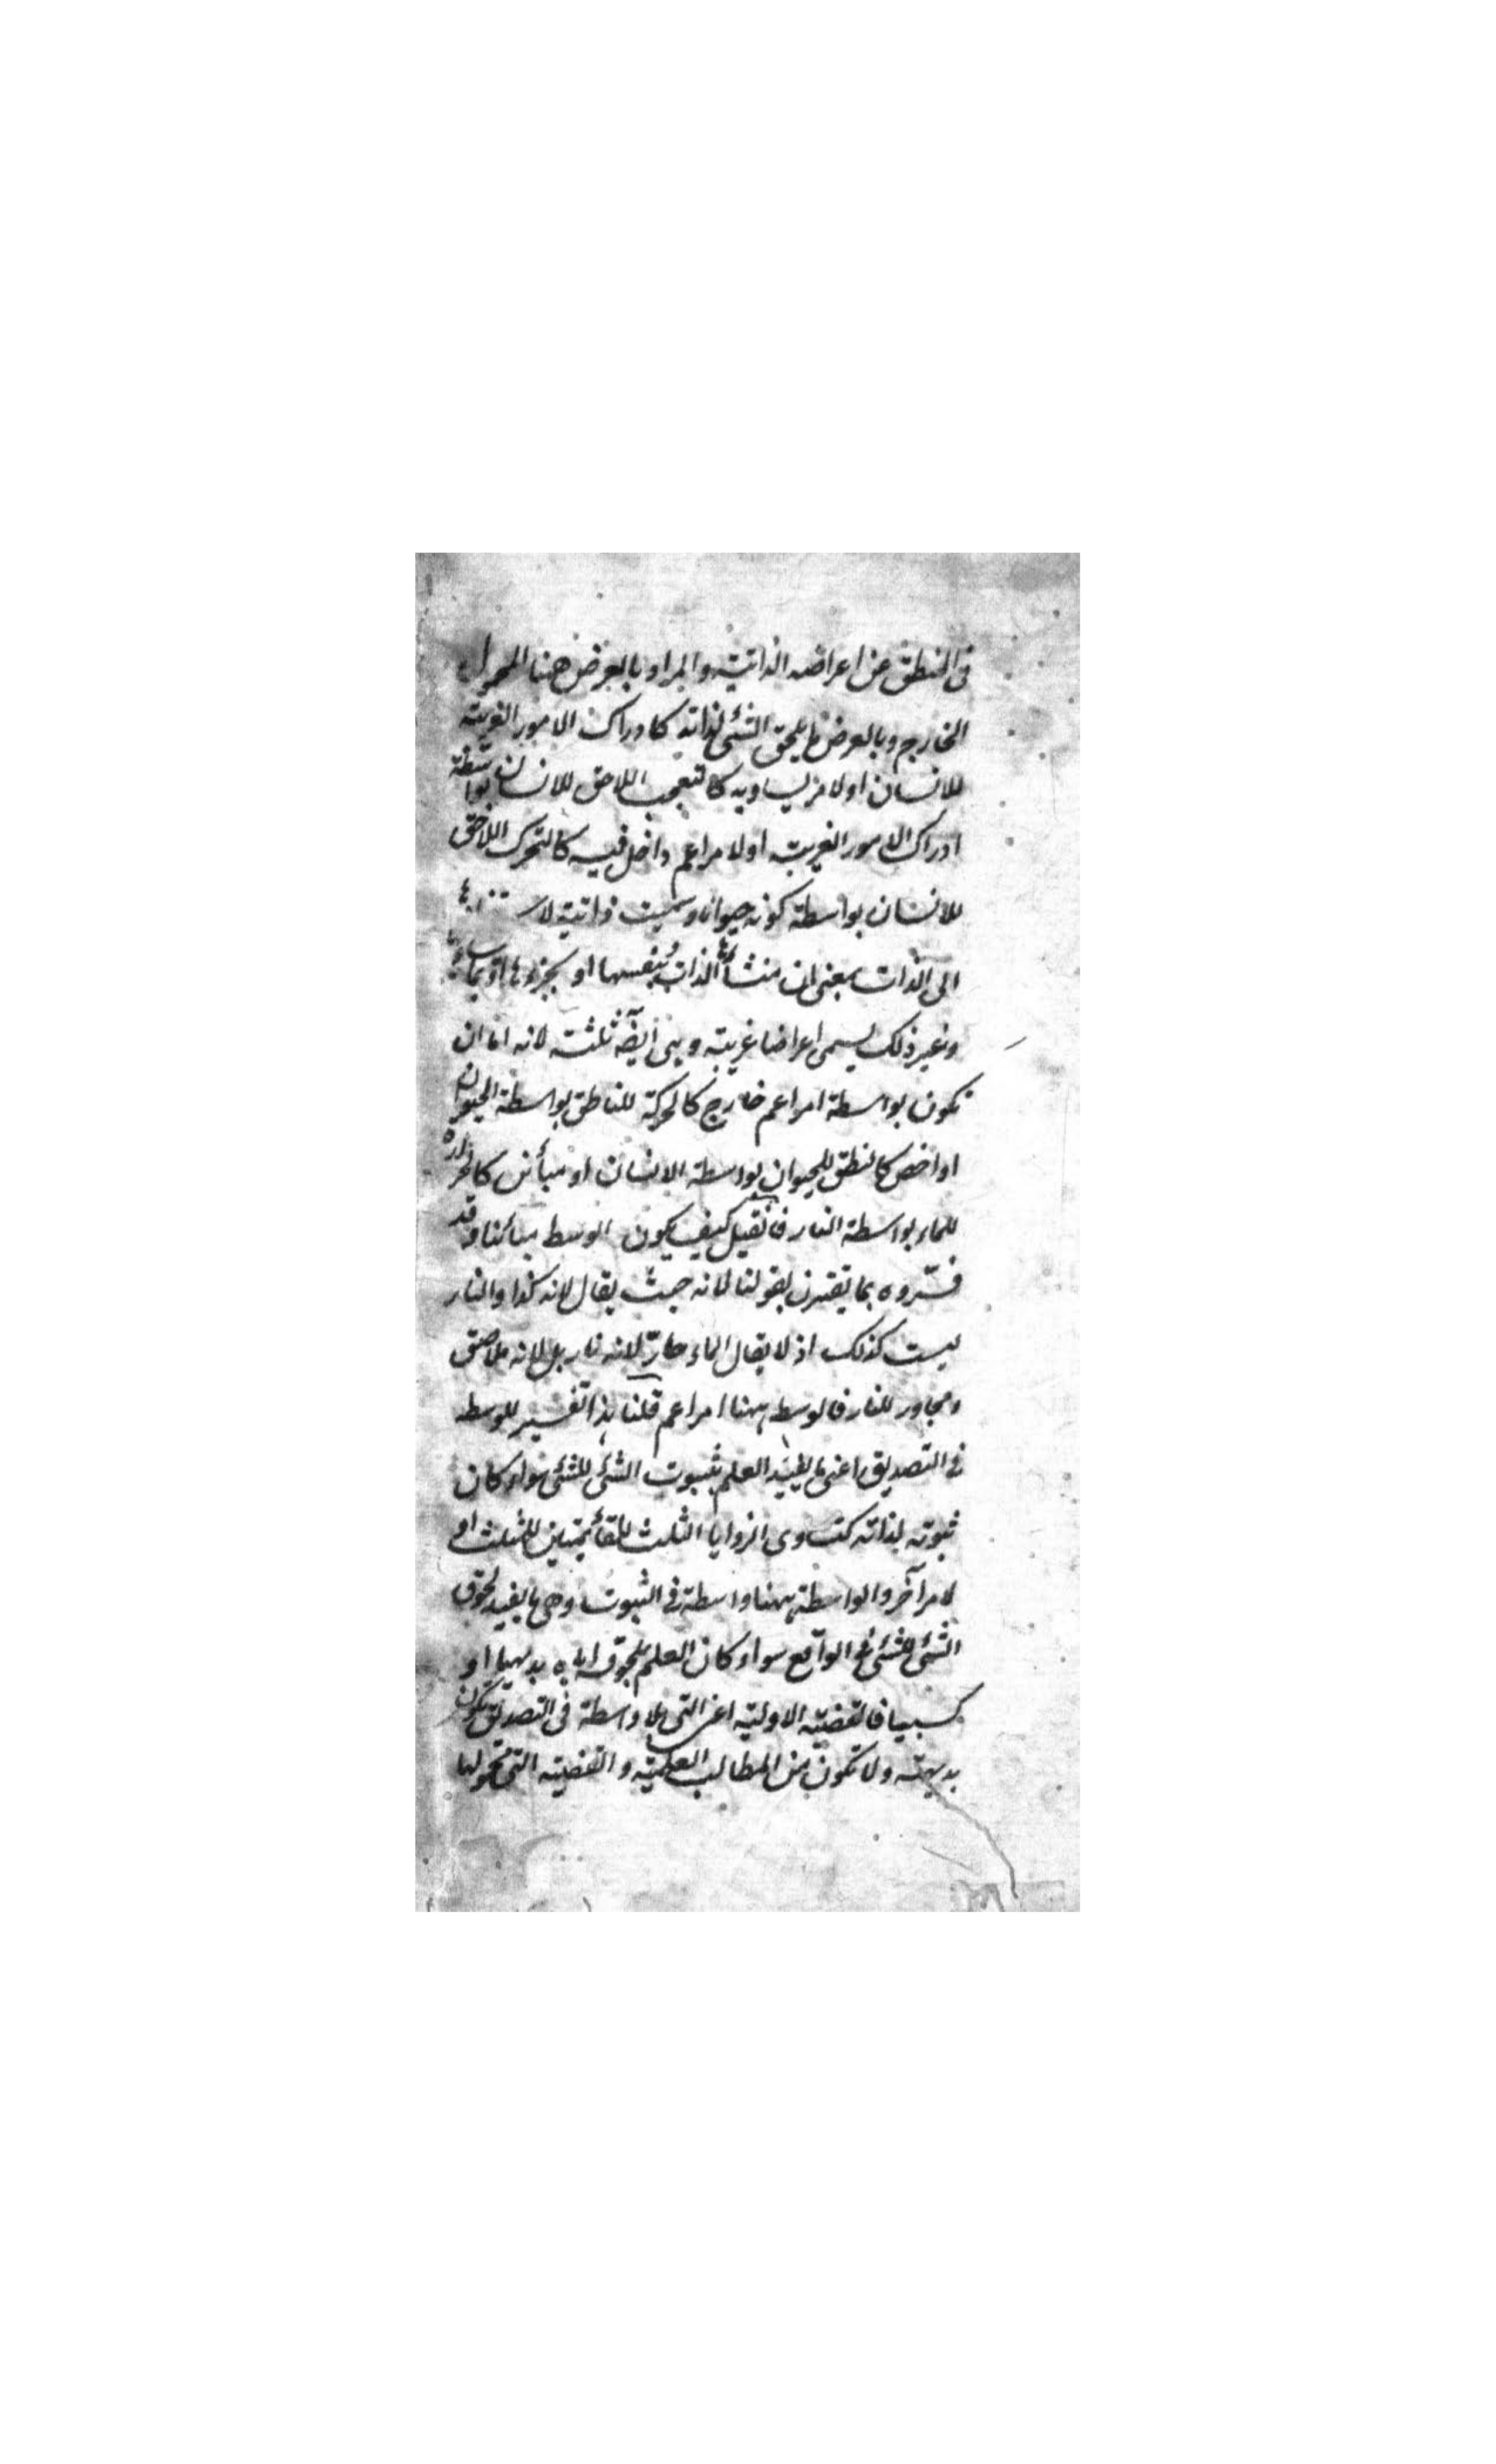 فى المنطق عن اعراضه الذاتية والمراد بالعرض هنا المحمول
الخارج وبالعرض ما يلحق الشئ لذاته كادراك الامور الغريبة
للانسان او لامر يساويه كالتعجب اللاحق للانسان بواسطة
ادراك الامور الغريبة او لامر اعم داخل فيه كالتحرك اللاحق
للانسان بواسطة كونه حيوانا وسميت ذاتية
الى الذات بمعنى ان منشأها الذات بنفسها او بجزءها او بما يساويها
وغير ذلك يسمى اعراضا غريبة وهى ايضا ثلثة لانه اما ان
تكون بواسطة امر اعم خارج كالحركة للناطق بواسطة الحيوان
او اخص كالنطق للحيوان بواسطة الانسان او مبائن كالحرارة
للماء بواسطة النار فان قيل كيف يكون الوسط مبائنا وقد
فسّروه بما يقترن بقولنا لانه حيث يقال لانه كذا والنار
ليست كذلك اذ لا يقال الماء حارّ لانه نار بل لانه ملاصق
ومجاور للنار فالوسط ههنا امر اعم قلنا هذا تفسير للوسط
فى التصديق اعنى ما يفيد العلم بثبوت الشئ للشئ سواء كان
ثبوته لذاته كتساوى الزوايا الثلث للقائمتين للمثلث او
لامر آخر والواسطة ههنا واسطة فى الثبوت وهى ما يفيد لحوق
الشئ للشئ فى الواقع سواء كان العلم بلحوقه اياه بديهيا او
كسبيا فالقضية الاولية اعنى التى بلا واسطة فى التصديق تكون
بديهية ولا تكون من المطالب العلمية والقضية التى محمولها